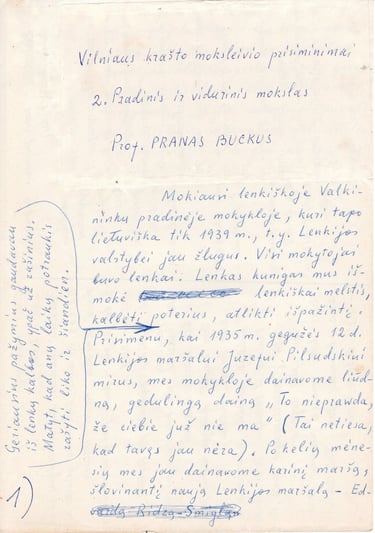 Vilniaus krašto moksleivio prisiminimai
2. Pradinis ir vidurinis mokslas
Prof. PRANAS BUCKUS
Mokiausi lenkiškoje Valki-
ninkų pradinėje mokykloje, kuri tapo
lietuviška tik 1939 m., t.y. Lenkijos
valstybei jau žlugus. Visi mokytojai
buvo lenkai. Lenkas kunigas mus iš-
mokė lenkiškai melstis,
kalbėti poterius, atlikti išpažintį.
Prisimenu, kai 1935 m. gegužės 12 d.
Lenkijos maršalui Juzefui Pilsudskiui
mirus, mes mokykloje dainavome liūd-
ną, gedulingą dainą „To nieprawda,
że ciebie już nie ma" (Tai netiesa,
kad tavęs jau nėra). Po kelių mėne-
sių mes jau dainavome karinį maršą,
šlovinantį naują Lenkijos maršalą – Ed-
vardą Ridzą-Smiglą
Geriausius pažymius gaudavau
iš lenkų kalbos, ypač už rašinius.
Matyt, kad anų laikų potraukis
rašyti liko ir šiandien.
1)